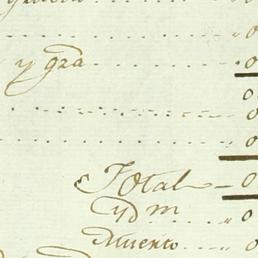 0
y gra 0
0
0
0
Total 0
ydm 0
Muerto 0